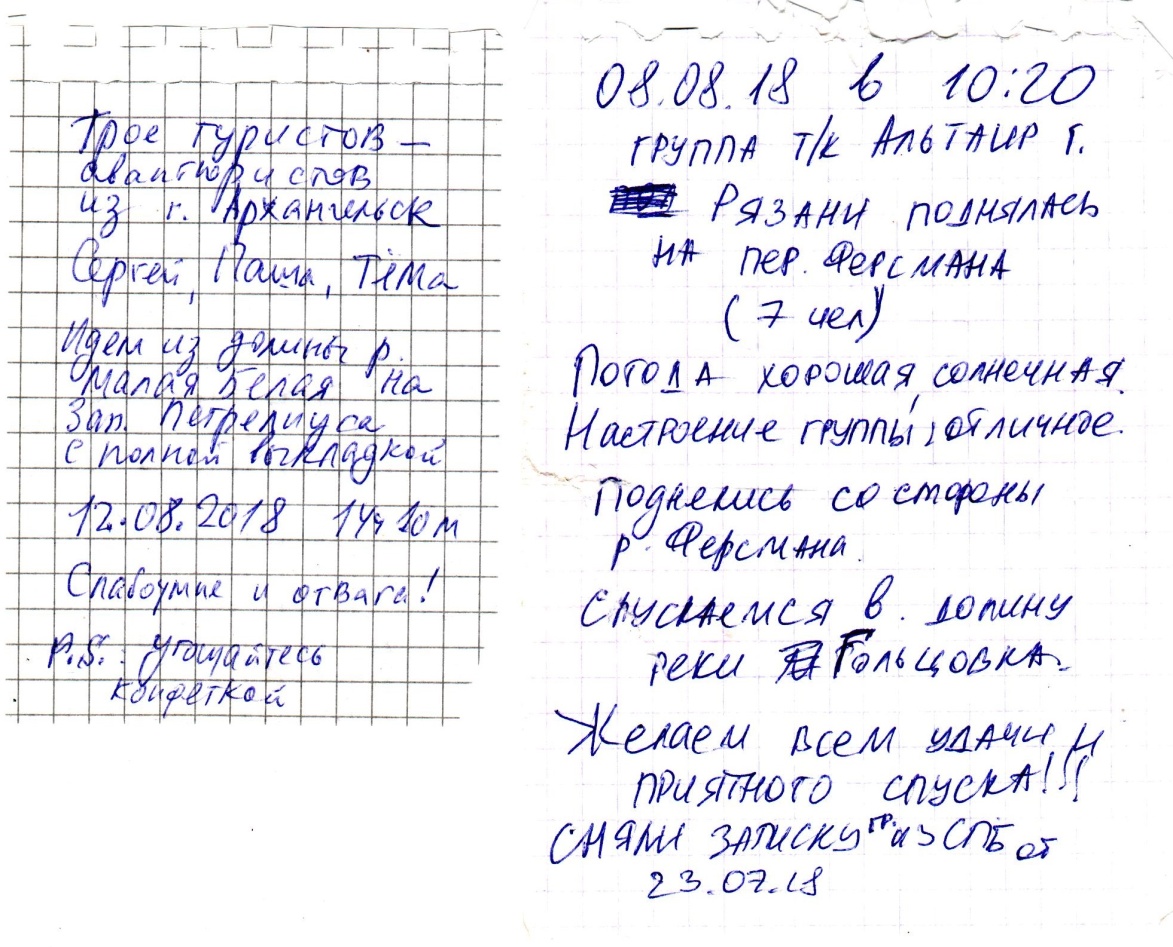 Трое туристов —
авантюристов
из г. Архангельск
Сергей, Паша, Тёма
Идем из долины р.
Малая Белая на
Зап. Петрелиуса
с полной выкладкой
12.08.2018 14ч 10м
Слабоумие и отвага!
P.S.: Угощайтесь
конфеткой
08.08.18 в 10:20
группа т/к Альтаир г.
Рязани поднялась
на пер. Ферсмана
(7 чел)
Погода хорошая, солнечная.
Настроение группы, отличное.
Поднелись со стороны
р. Ферсмана.
Спускаемся в. долину
реки Гольцовка.
Желаем всем удачи и
приятного спуска!!!
Сняли записку гр. из СПБ от
23.07.18